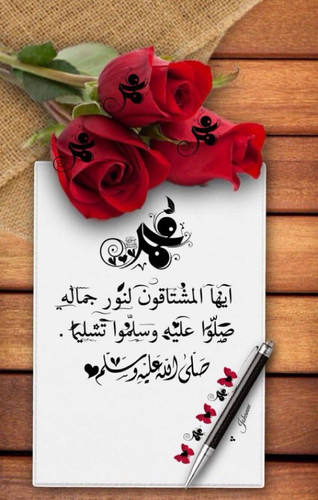 محمد
محمد
محمد
محمد
أيها المشتاقون لنور جماله
صلوا عليه وسلموا تسليما .
صلى الله عليه وسلم